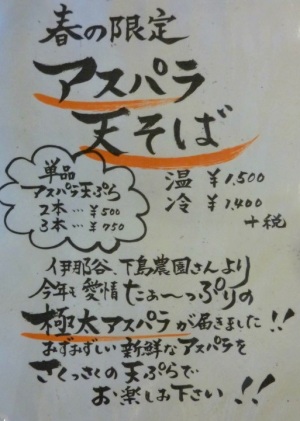 春の限定
アスパラ
天そば
単品
アスパラ天ぷら
2本…¥500
3本…¥750
温 ¥1,500
冷 ¥1,400
+税
伊那谷、下島農園さんより
今年も愛情たぁ〜っぷりの
極太アスパラが届きました!!
みずみずしい新鮮なアスパラを
さくっさくの天ぷらで
お楽しみ下さい!!